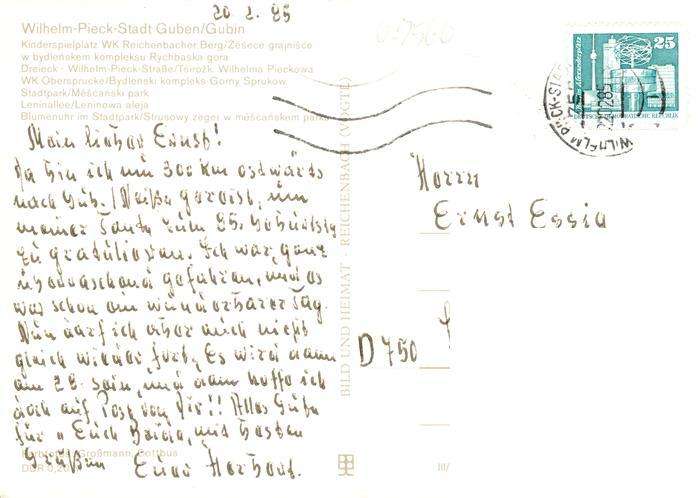 20. 2. 85
Wilhelm-Pieck-Stadt Guben/Gubin
Kinderspielplatz WK Reichenbacher Berg/Zesece grajnišćo
w bydleńskem kompleksu Rychbaska gora
Dreieck - Wilhelm-Pieck-Straße/Tśirožk, Wilhelma Pieckowa
WK Obersprucke/Bydleński kompleks Gorny Sprukow
Stadtpark/Měšćański park
Leninallee/Leninowa aleja
Blumenuhr im Stadtpark/Strusowy zeger w měšćańskem parku
Mein lieber Ernst!
Da bin ich nun 300 km ostwärts
nach Gub. / Neiße gereist, um
meiner Tante zum 85. Geburtstag
zu gratulieren. Ich war ganz
überraschend gefahren, und es
war schon ein wunderbarer Tag.
Nun darf ich aber auch nicht
gleich wieder fort. Es wird dann
am 28. sein, und dann hoffe ich
doch auf Post von Dir!! Alles Gute
für Euch Beide, mit besten
Grüßen
Großmann, Cottbus
DDR 0,20
BILD UND HEIMAT · REICHENBACH (VOGTL)
25
DEUTSCHE DEMOKRATISCHE REPUBLIK
WILHELM-PIECK-STADT
Herrn
Ernst Essig
D 750